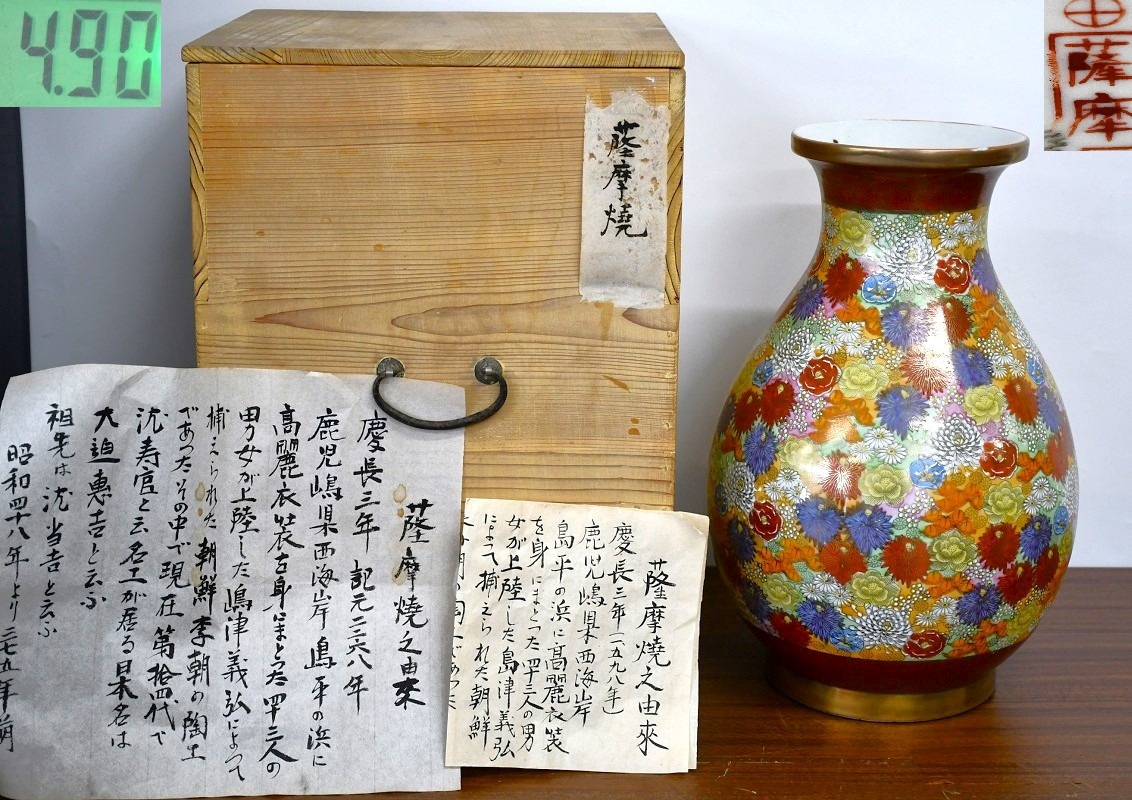 4.90
薩摩
薩摩焼
薩摩焼之由来
慶長三年 記元二二六八年
鹿児嶋県西海岸嶋平の浜に
高麗衣装を身にまとった四十三人の
男女が上陸した嶋津義弘によって
捕えられた朝鮮李朝の陶工
であったその中で現在第拾四代で
沈寿官と云名工が居る日本名は
大迫恵吉と云ふ
祖先は沈当吉と云ふ
昭和四十八年より三七五年前
薩摩焼之由來
慶長三年(一五九八年)
鹿児嶋県西海岸
島平の浜に高麗衣装
を身にまとった四十三人の男
女が上陸した島津義弘
によって捕えられた朝鮮